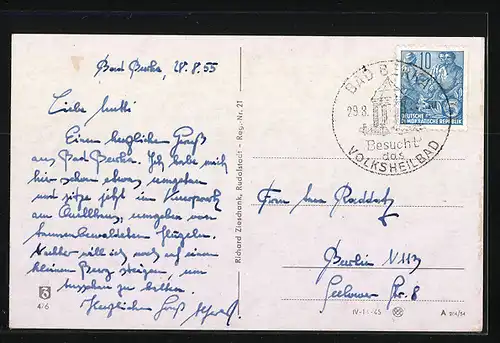 Bad Berka, 28.8.55
Liebe Mutti!
Einen herzlichen Gruß
aus Bad Berka. Ich habe mich
hier schon etwas umgesehen
und sitze jetzt im Kurpark
am Quellhaus, umgeben von
tannenbewaldeten Hügeln.
Nachher will ich noch auf einen
kleinen Berg steigen, um
Ausschau zu halten.
Herzlichen Gruß
4/6
Richard Zieschrank, Rudolstadt - Reg.-Nr. 21
BAD BERKA
29.8.
Besucht
das
VOLKSHEILBAD
10
DEUTSCHE
DEMOKRATISCHE REPUBLIK
Frau Raddatz
Berlin N 113
Seelower Str. 8
IV-14-45
A